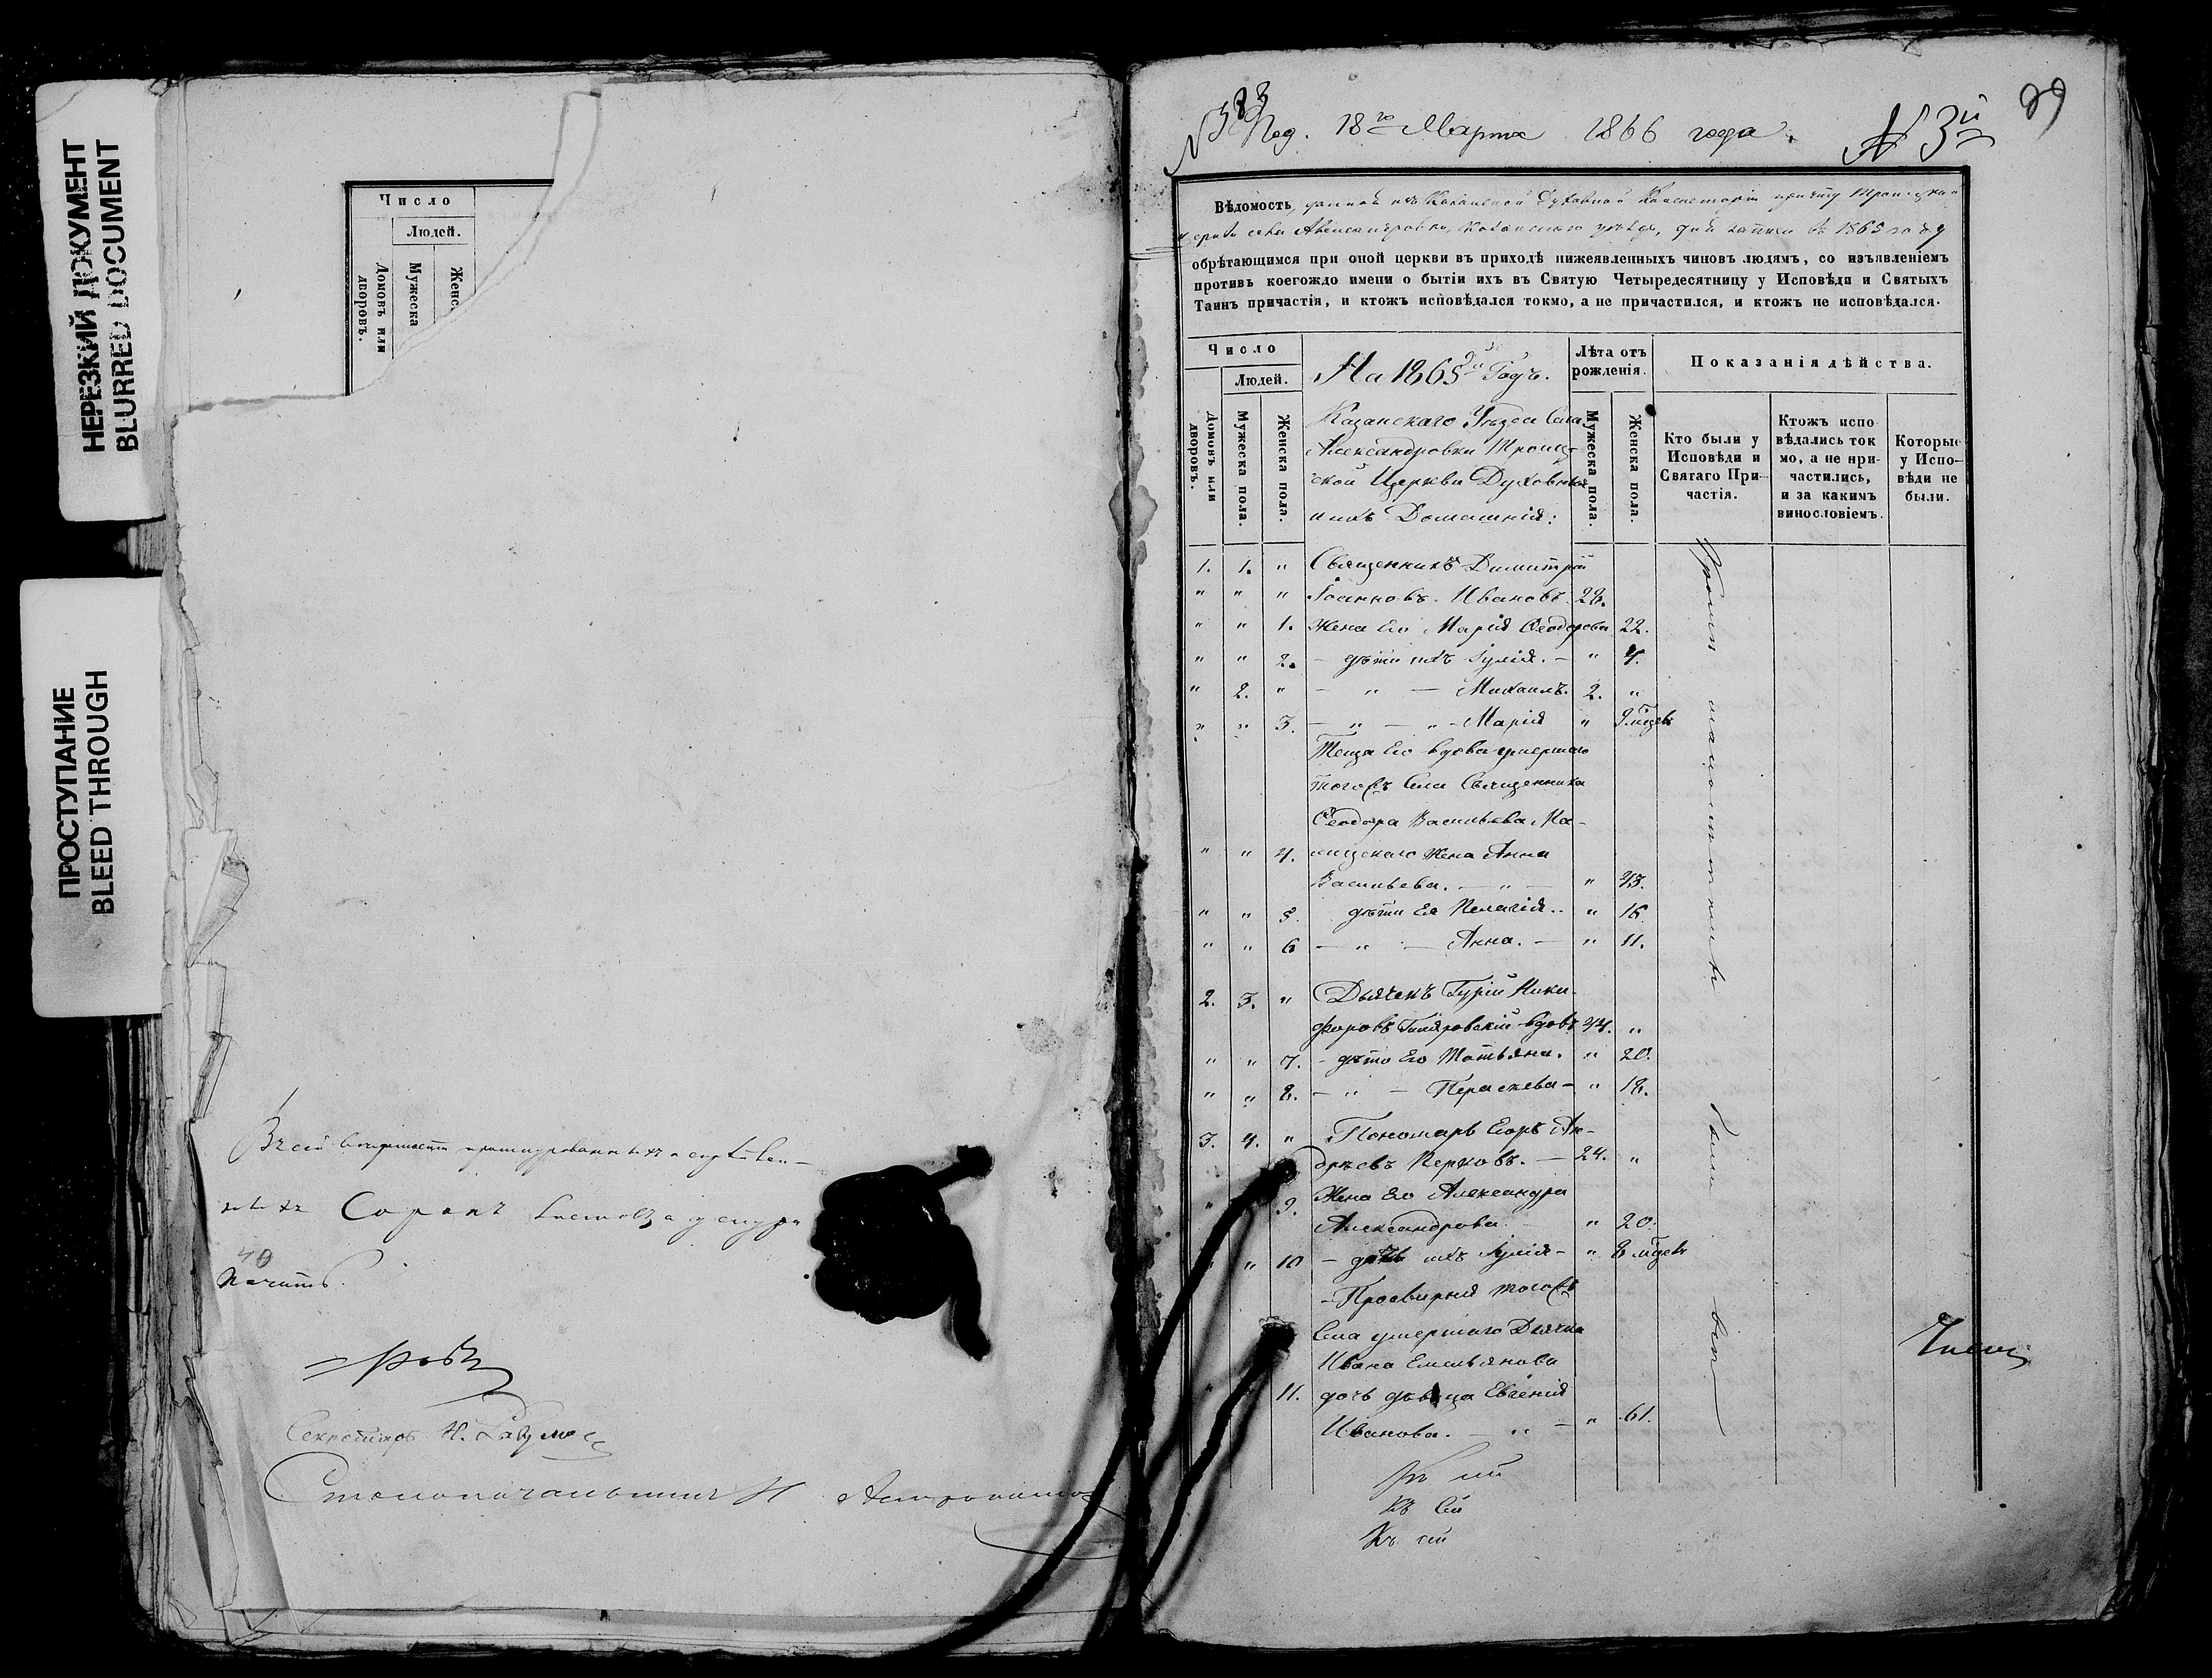 НЕРЕЗКИЙ ДОКУМЕНТ
BLURRED DOCUMENT
ПРОСТУПАНИЕ
BLEED THROUGH
Число
Людей.
Домовъ или дворовъ.
Мужеска
Женс
Всей
Сорокъ
40
печать.
Секретарь Н.
Столоначальникъ Н
№ 383 Под. 18го Марта 1866 года.
№ 3й
99
Вѣдомость, данная изъ Казанской Духовной Консисторіи причту Троицкой
церкви села Александровки, Казанскаго уѣзда, для записи въ 1865 году
обрѣтающимся при оной церкви въ приходѣ нижеявленныхъ чиновъ людямъ, со изъявленіемъ
противъ коегождо имени о бытіи ихъ въ Святую Четыредесятницу у Исповѣди и Святыхъ
Таинъ причастія, и ктожъ исповѣдался токмо, а не причастился, и ктожъ не исповѣдался.
Число
Людей.
Домовъ или дворовъ.
Мужеска пола.
Женска пола.
На 1865й Годъ.
Казанскаго Уѣзда Села
Александровки Троиц-
ской Церкви Духовныя
и ихъ Домашнія:
Лѣта отъ рожденія.
Мужеска пола.
Женска пола.
Показанія дѣйства.
Кто были у
Исповѣди и
Святаго При-
частія.
Ктожъ испо
вѣдались ток
мо, а не при-
частились,
и за какимъ
винословіемъ.
Которые
у Испо-
вѣди не
были.
1. 1. " Священникъ Димитрій
" " " Іоанновъ Ивановъ 28.
" " 1. Жена Его Марія Ѳеодорова 22.
" " 2. - дѣти ихъ Іулія. - " 4.
" 2. " - " - Михаилъ. 2. "
" " 3. - " - " - Марія " 9 мцевъ
Теща Его вдова умершаго
тогожъ Села Священника
Ѳеодора Васильева Ма-
" " 4. Жена Анна
Васильева. - " - " 43.
" " 5. дѣти Ея Пелагія. - " 16
" " 6 - " - Анна. - " 11.
2. 3. " Дьячекъ Гурій Ники-
форовъ Гиляровскій вдовъ 44. "
" " 7. - дѣти Его Татьяна. " 20.
" " 8. - " - Параскева - " 18.
3. 4. " Пономарь Егоръ Ан-
дреевъ Перховъ. - 24. "
" 9. Жена Его Александра
Александрова. " 20.
" " 10 - дочь ихъ Іулія - " 8 мцевъ
- Просвирня тогожъ
Села умершаго Дьячка
Ивана Емельянова
11. дочь дѣвица Евгенія
Иванова. - " - " 61.
были
всѣ
Къ сей
Къ сей